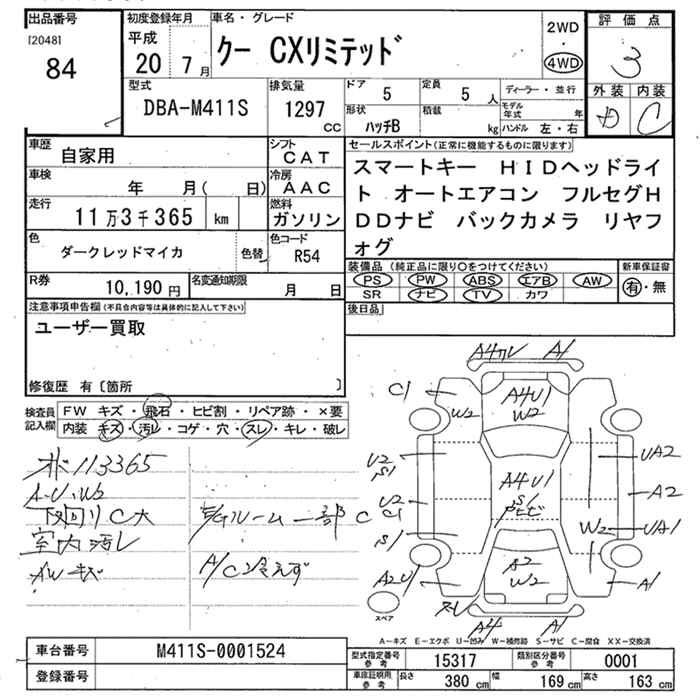 出品番号
[2048]
84
初度登録年月
平成
20 7月
車名・グレード
クー CXリミテッド
2WD
・
4WD
評価点
3
外装 内装
D C
型式
DBA-M411S
排気量
1297
CC
ドア
5
定員
5 人
形状
ハッチB
積載
kg
ディーラー・並行
モデル年式 年
ハンドル 左・右
車歴
自家用
シフト
CAT
車検
年 月( 日)
冷房
AAC
走行
11万3千365 km
燃料
ガソリン
色
ダークレッドマイカ
色替
色コード
R54
R券
10,190円
名変通知期限
月 日
セールスポイント(正常に機能するものに限ります)
スマートキー HIDヘッドライ
ト オートエアコン フルセグH
DDナビ バックカメラ リヤフ
ォグ
装備品(純正品に限り○をつけてください)
PS PW ABS エアB AW
SR ナビ TV カワ
新車保証書
有・無
後日品
注意事項申告欄(不具合内容等は具体的に記入して下さい)
ユーザー買取
修復歴 有〔箇所 〕
検査員記入欄
FW キズ・飛石・ヒビ割・リペア跡・×要
内装 キズ・汚レ・コゲ・穴・スレ・キレ・破レ
113365
A・U・W2
下回りC大
室内汚レ
AWキズ
ルーム一部C
A/C冷えず
A4カレ A1
C1
W2
A4U1
W2
U2
S1
U2
C1
S1
A2U1
A4U1
S1
UA2
A2
W2
UA1
A1
A2
W2
スレ
A4
A1
スペア
A-キズ E-エクボ U-凹み W-補修跡 S-サビ C-腐食 XX-交換済
車台番号
M411S-0001524
登録番号
型式指定番号
参考
15317
類別区分番号
参考
0001
車庫証明用
参考
長さ 380cm 幅 169cm 高さ 163cm